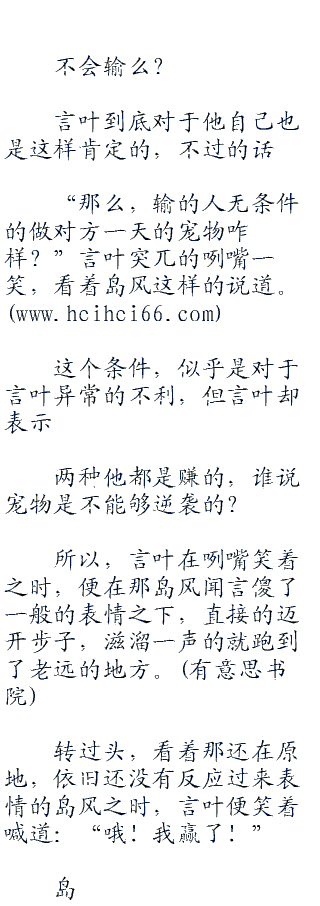 不会输么？
言叶到底对于他自己也
是这样肯定的，不过的话
“那么，输的人无条件
的做对方一天的宠物咋
样？”言叶突兀的咧嘴一
笑，看着岛风这样的说道。
(www.hcihci66.com)
这个条件，似乎是对于
言叶异常的不利，但言叶却
表示
两种他都是赚的，谁说
宠物是不能够逆袭的？
所以，言叶在咧嘴笑着
之时，便在那岛风闻言傻了
一般的表情之下，直接的迈
开步子，滋溜一声的就跑到
了老远的地方。(有意思书
院)
转过头，看着那还在原
地，依旧还没有反应过来表
情的岛风之时，言叶便笑着
喊道：“哦！我赢了！”
岛